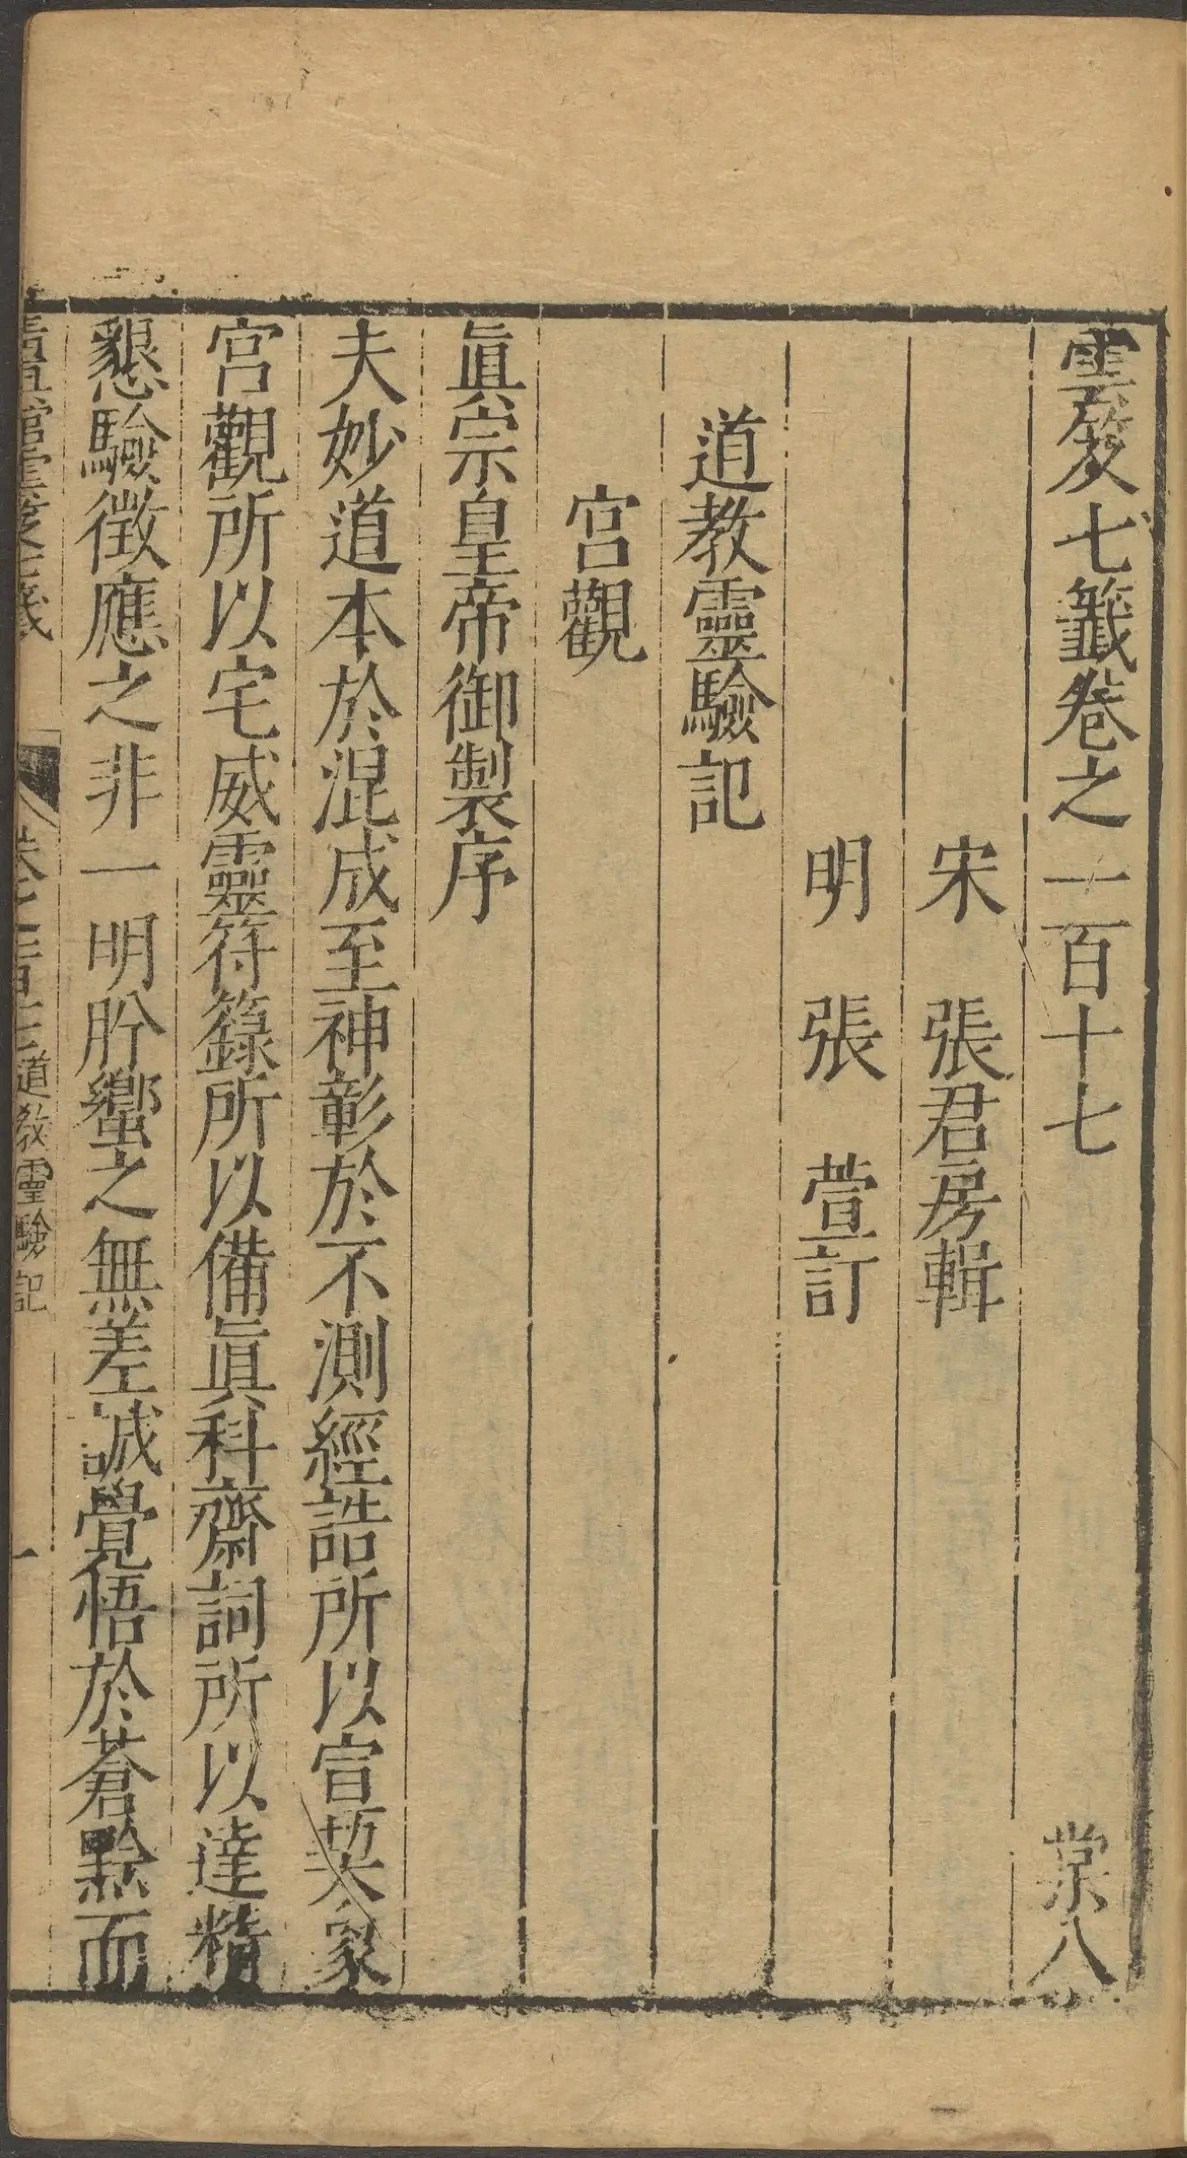 雲笈七籤卷之一百十七 棠八
宋 張君房輯
明 張 萱訂
道教靈驗記
宮觀
眞宗皇帝御製序
夫妙道本於混成至神彰於不測經誥所以宣契象
宮觀所以宅威靈符籙所以備眞科齋詞所以達精
懇驗徵應之非一明肹蠁之無差誠覺悟於蒼黔而
道教靈驗記
一